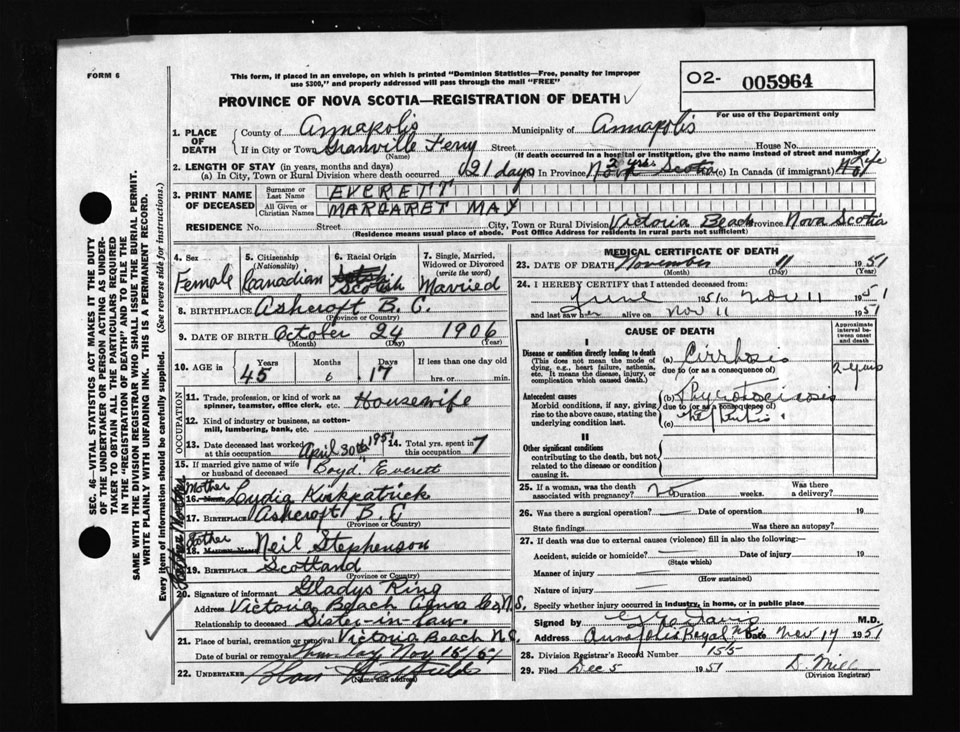 FORM 6
This form, if placed in an envelope, on which is printed "Dominion Statistics—Free, penalty for improper
use $300," and properly addressed will pass through the mail "FREE"
O2- 005964
For use of the Department only
PROVINCE OF NOVA SCOTIA—REGISTRATION OF DEATH ✓
1. PLACE OF DEATH { County of Annapolis Municipality of Annapolis
If in City or Town Granville Ferry Street House No.
(Name) (If death occurred in a hospital or institution, give the name instead of street and number)
2. LENGTH OF STAY (in years, months and days)
(a) In City, Town or Rural Division where death occurred 21 days In Province Nova Scotia (c) In Canada (if immigrant) Life
3. PRINT NAME OF DECEASED { Surname or Last Name EVERETT
All Given or Christian Names MARGARET MAY
RESIDENCE No. Street City, Town or Rural Division Victoria Beach Province Nova Scotia
(Residence means usual place of abode. Post Office Address for residents in rural parts not sufficient)
4. Sex Female
5. Citizenship (Nationality) Canadian
6. Racial Origin Scotish
7. Single, Married, Widowed or Divorced (write the word) Married
8. BIRTHPLACE Ashcroft B. C.
(Province or Country)
9. DATE OF BIRTH October 24 1906
(Month) (Day) (Year)
10. AGE in Years 45 Months Days 17 If less than one day old
hrs. or min.
OCCUPATION
11. Trade, profession, or kind of work as spinner, teamster, office clerk, etc. Housewife
12. Kind of industry or business, as cotton-mill, lumbering, bank, etc.
13. Date deceased last worked at this occupation April 30th 1951 14. Total yrs. spent in this occupation 7
15. If married give name of wife or husband of deceased Boyd Everett
Mother
16. Lydia Kirkpatrick
17. BIRTHPLACE Ashcroft B. C
(Province or Country)
Father
18. Maiden Name Neil Stephenson
19. BIRTHPLACE Scotland
(Province or Country)
20. Signature of informant Gladys Ring
Address Victoria Beach Anna Co, N.S.
Relationship to deceased Sister-in-law.
21. Place of burial, cremation or removal Victoria Beach N.S.
Date of burial or removal Nov
22. UNDERTAKER Blair
(Name and address)
MEDICAL CERTIFICATE OF DEATH
23. DATE OF DEATH November 11 1951
(Month) (Day) (Year)
24. I HEREBY CERTIFY that I attended deceased from:
June 1951 to Nov 11 1951
and last saw her alive on Nov 11 1951
CAUSE OF DEATH
Approximate interval between onset and death
I
Disease or condition directly leading to death (a) Cirrhosis
(This does not mean the mode of dying, e.g., heart failure, asthenia, etc. It means the disease, injury, or complication which caused death.)
due to (or as a consequence of) 2 years
Antecedent causes (b)
Morbid conditions, if any, giving rise to the above cause, stating the underlying condition last.
due to (or as a consequence of)
(c)
II
Other significant conditions
contributing to the death, but not related to the disease or condition causing it.
25. If a woman, was the death associated with pregnancy? no Duration weeks. Was there a delivery?
26. Was there a surgical operation? Date of operation 19
State findings Was there an autopsy?
27. If death was due to external causes (violence) fill in also the following:—
Accident, suicide or homicide? Date of injury 19
(State which)
Manner of injury
(How sustained)
Nature of injury
Specify whether injury occurred in industry, in home, or in public place
Signed by M.D.
Address Annapolis Royal NS Date Nov 17 1951
28. Division Registrar's Record Number 155
29. Filed Dec 5 1951
(Division Registrar)
SEC. 46—VITAL STATISTICS ACT MAKES IT THE DUTY
OF THE UNDERTAKER OR PERSON ACTING AS UNDER-
TAKER TO OBTAIN ALL THE PARTICULARS REQUIRED
IN THE "REGISTRATION OF DEATH" AND TO FILE THE
SAME WITH THE DIVISION REGISTRAR WHO SHALL ISSUE THE BURIAL PERMIT.
WRITE PLAINLY WITH UNFADING INK. THIS IS A PERMANENT RECORD.
Every item of information should be carefully supplied. (See reverse side for instructions.)